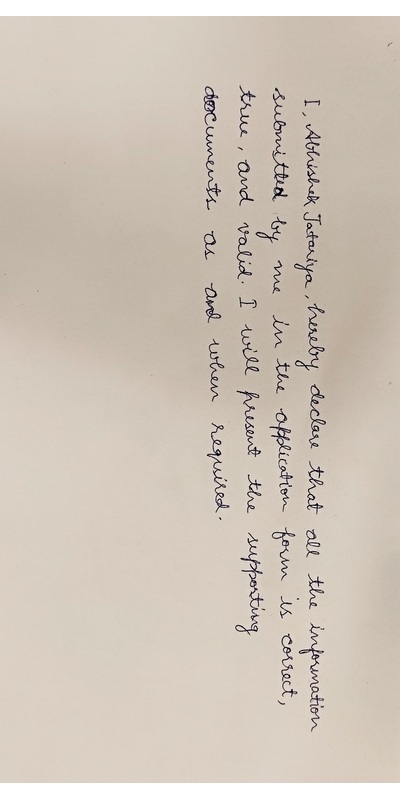 I, Abhishek Jatariya, hereby declare that all the information
submitted by me in the application form is correct,
true, and valid. I will present the supporting
documents as and when required.